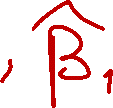 , B̂ 1